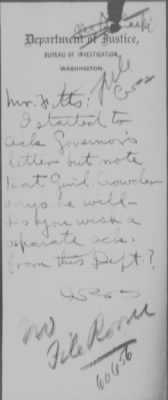 Department of Justice,
BUREAU OF INVESTIGATION,
WASHINGTON.
file
Mr. Fitts:
I started to
ack. Governor's
letter but note
that Genl. Crowder
says he will—
Do you wish a
separate ack.
from this Dept.?
File Room
60656